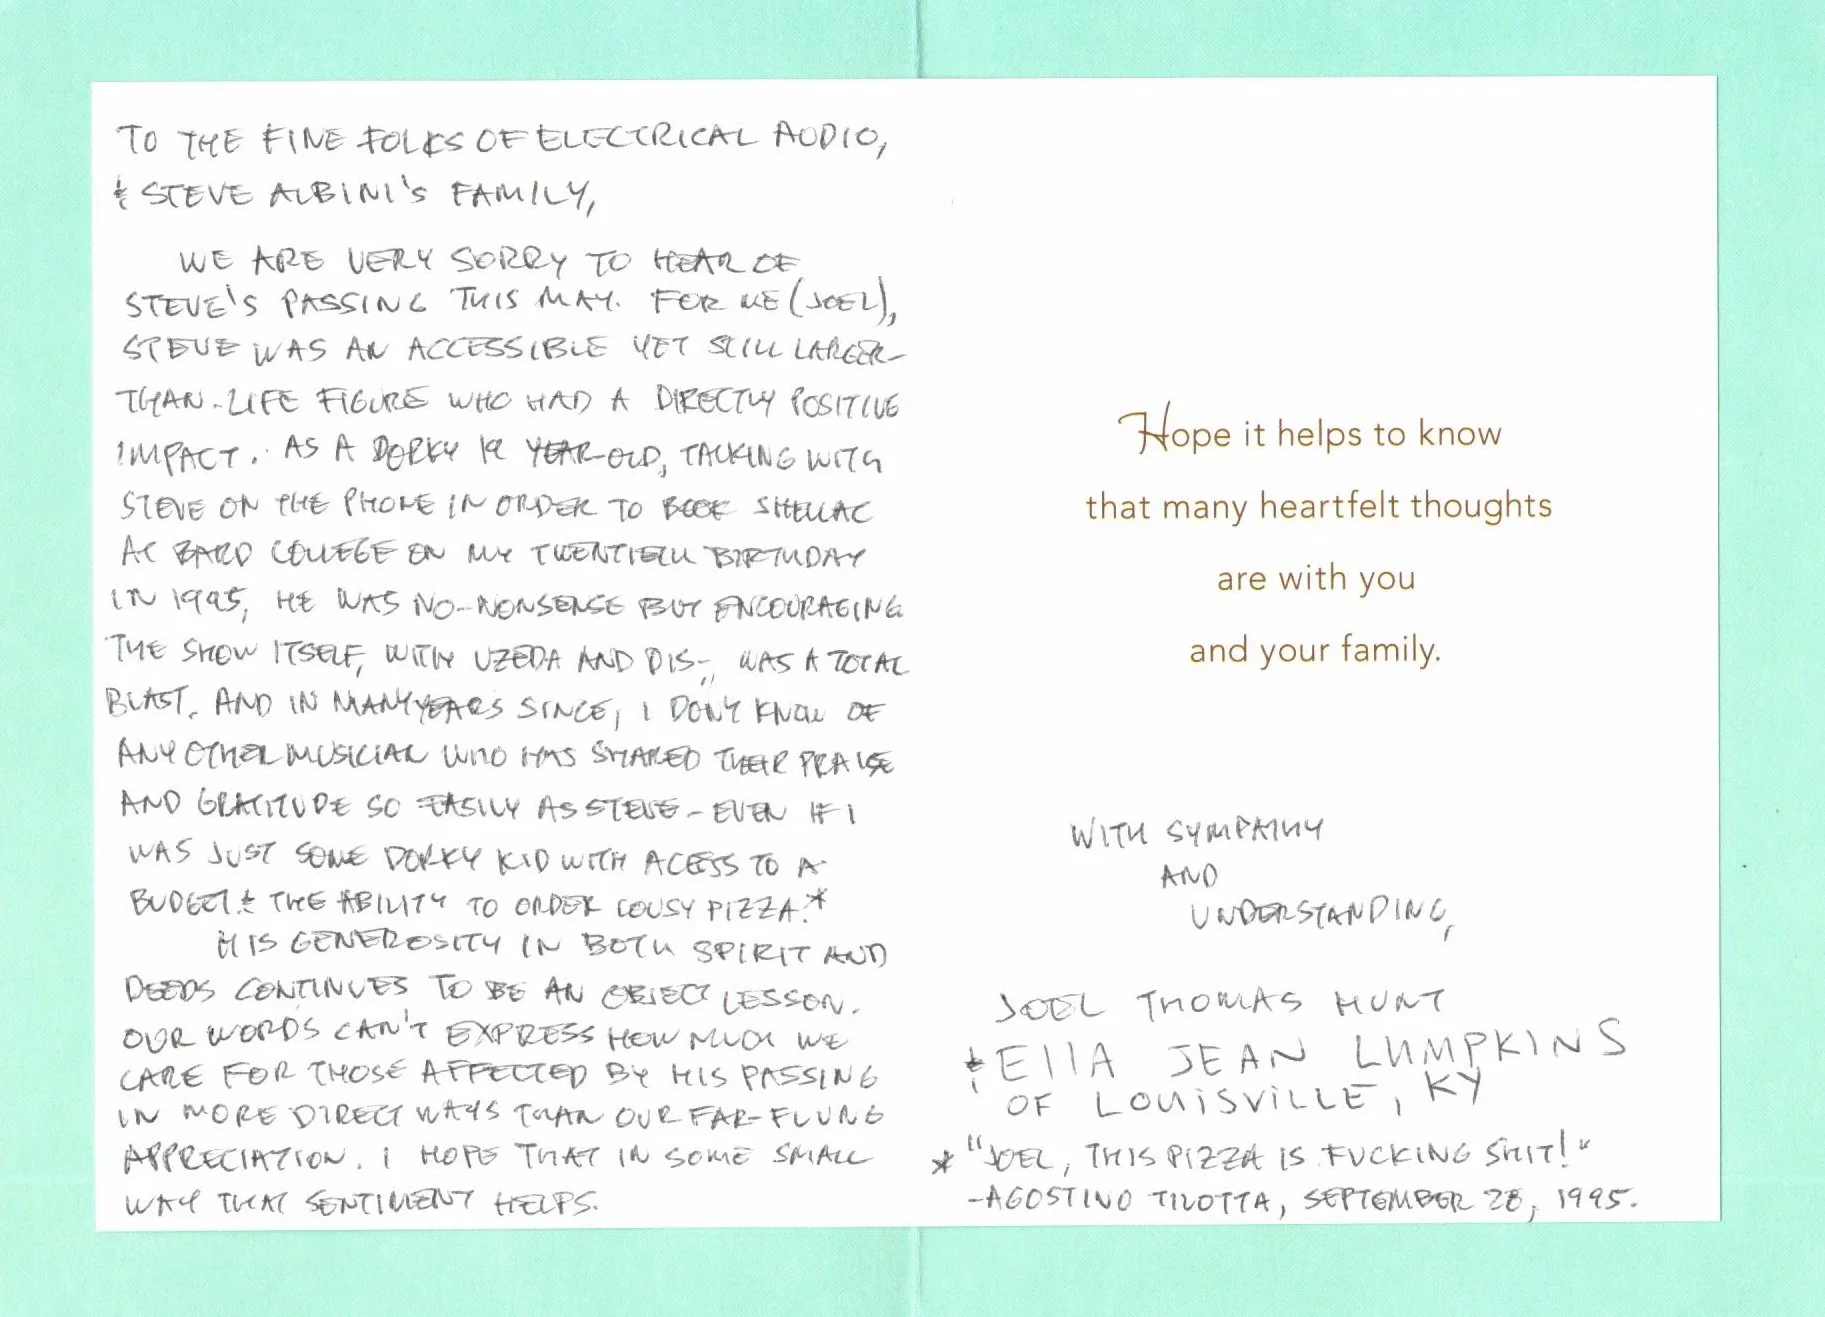 TO THE FINE FOLKS OF ELECTRICAL AUDIO,
& STEVE ALBINI'S FAMILY,
WE ARE VERY SORRY TO HEAR OF
STEVE'S PASSING THIS MAY. FOR ME (JOEL),
STEVE WAS AN ACCESSIBLE YET STILL LARGER-
THAN-LIFE FIGURE WHO HAD A DIRECTLY POSITIVE
IMPACT. AS A DORKY 19 YEAR-OLD, TALKING WITH
STEVE ON THE PHONE IN ORDER TO BOOK SHELLAC
AT BARD COLLEGE ON MY TWENTIETH BIRTHDAY
IN 1995, HE WAS NO-NONSENSE BUT ENCOURAGING
THE SHOW ITSELF, WITH UZEDA AND DIS-, WAS A TOTAL
BLAST. AND IN MANY YEARS SINCE, I DON'T KNOW OF
ANY OTHER MUSICIAN WHO HAS SHARED THEIR PRAISE
AND GRATITUDE SO EASILY AS STEVE - EVEN IF I
WAS JUST SOME DORKY KID WITH ACESS TO A
BUDGET & THE ABILITY TO ORDER LOUSY PIZZA.*
HIS GENEROSITY IN BOTH SPIRIT AND
DEEDS CONTINUES TO BE AN OBJECT LESSON.
OUR WORDS CAN'T EXPRESS HOW MUCH WE
CARE FOR THOSE AFFECTED BY HIS PASSING
IN MORE DIRECT WAYS THAN OUR FAR-FLUNG
APPRECIATION. I HOPE THAT IN SOME SMALL
WAY THAT SENTIMENT HELPS.
Hope it helps to know
that many heartfelt thoughts
are with you
and your family.
WITH SYMPATHY
AND
UNDERSTANDING,
JOEL THOMAS HUNT
& Ella JEAN LUMPKINS
OF LOUiSVILLE, KY
* "JOEL, THIS PIZZA IS FUCKING SHIT!"
-AGOSTINO TILOTTA, SEPTEMBER 28, 1995.